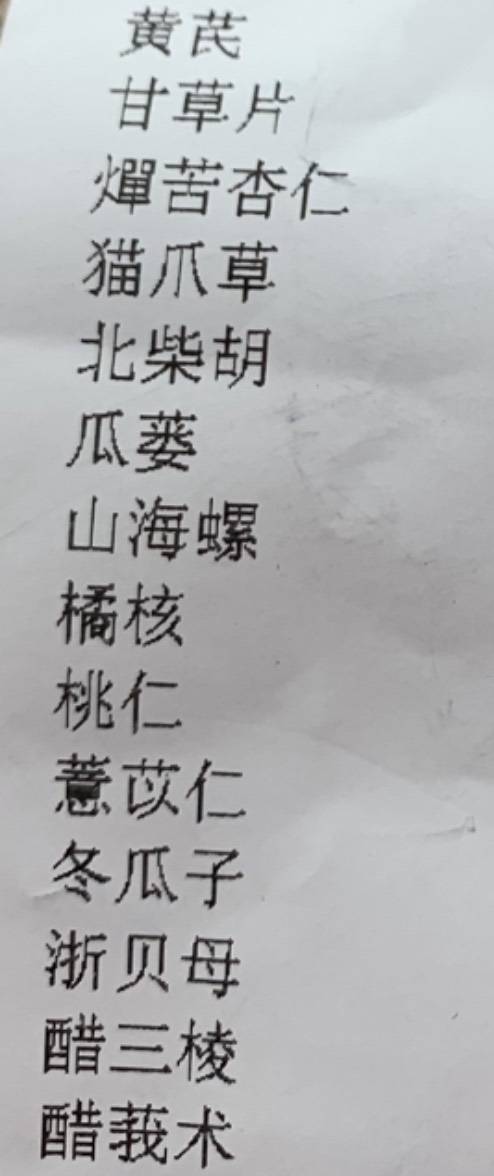 黄芪
甘草片
燀苦杏仁
猫爪草
北柴胡
瓜蒌
山海螺
橘核
桃仁
薏苡仁
冬瓜子
浙贝母
醋三棱
醋莪术